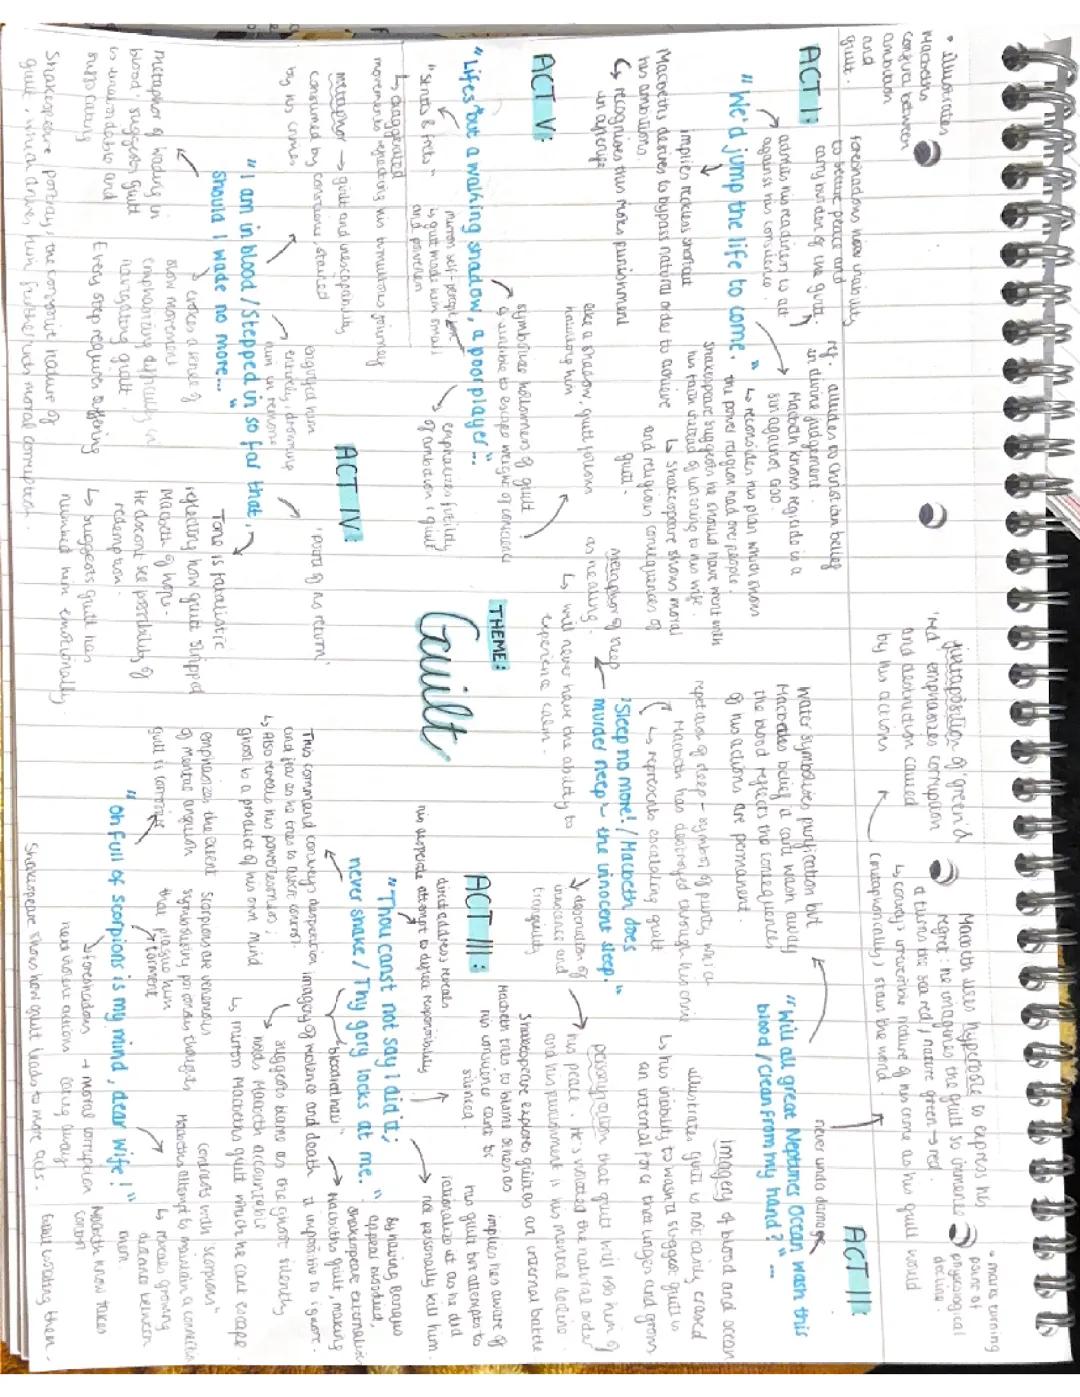 • illustrates
Macbeths
conflict between
ambition
and
guilt.
foreshadows his inability
to secure peace and
carry burden of the guilt.
admits his readiness to act
against his concience.
ACT I:
"We'd jump the life to come."
implies reckless shortcut
Macbeths desires to bypass natural order to achieve
his ambitions.
↳ recognises this risks punishment
in afterlife
ref. alludes to Christian belief
in divine judgement.
Macbeth knows regicide is a
sin against God.
↳ reconsiders his plan which shows
the power religion had over people.
Shakespeare suggests he should have went with
his faith instead of listening to his wife.
↳ Shakespeare shows moral
and religious consequences of
guilt.
ACT V:
"Lifes but a walking shadow, a poor player..."
"struts & frets"
↳ exaggerated
movements reflecting his tumultuous journey
mirrors self-perception
is guilt made him small
and powerless
like a shadow, guilt follows
haunting him
symbolises hollowness of guilt
↳ unable to escape weight of concience
emphasizes futility
of ambition & guilt
metaphor → guilt and inescapability
consumed by conscious stained
by his crimes
ACT IV:
"I am in blood / Stepped in so far that,
should I wade no more..."
engulfed him
entirely, drowning
him in remorse
'point of no return'
metaphor of wading in
blood suggests guilt
is unavoidable and
suffocating
↳ evokes a sense of
slow movement
emphasizing difficulty in
navigating guilt.
Every step requires suffering
Shakespeare portrays the corrosive nature of
guilt, which drives him further into moral corruption.
Tone is fatalistic
reflecting how guilt stripped
Macbeth of hope.
He doesnt see possibility of
redemption.
↳ suggests guilt has
numbed him emotionally.
THEME:
Guilt
juxtaposition of 'green' &
'red' emphasizes corruption
and destruction caused
by his actions
Macbeth uses hyperbole to express his
regret: he imagines the guilt so immense
it turns the sea red / nature green → red.
↳ conveys irreversible nature of his crime as his guilt would
(metaphorically) stain the world.
• marks turning
point of
psychological
decline.
ACT II:
"Will all great Neptunes Ocean wash this
blood / Clean from my hand?"...
never undo damage
water symbolises purification but
Macbeths belief it cant wash away
the blood reflects the consequences
of his actions are permanent.
Imagery of blood and ocean
illustrates guilt is not easily erased
↳ his inability to wash it suggests guilt is
an internal force that lingers and grows
repetition of sleep - symbol of purity, which
Macbeth has destroyed through his crime
↳ represents escalating guilt
"Sleep no more! / Macbeth does
murder sleep ~ the innocent sleep."
metaphor of sleep
as healing.
↳ will never have the ability to
experience calm.
↳ desecration of
innocence and
tranquility
personification that guilt will rob him of
his peace. He's violated the natural order
and his punishment is his mental decline
Shakespeare explores guilt as an internal battle
ACT III:
"Thou canst not say I did it;
never shake / Thy gory locks at me."
direct address reveals
his desperate attempt to deflect responsibility
Macbeth tries to blame others as
his conscience cant be
silenced.
implies hes aware of
his guilt but attempts to
rationalise it as he did
not personally kill him.
This command conveys desperation
and fear as he tries to assert control.
↳ Also reveals his powerlessness;
ghost is a product of his own mind
imagery of violence and death
'blooded hair'
suggests blame as the ghost silently
holds Macbeth accountable
↳ mirrors Macbeths guilt which he cant escape.
By having Banquo
appear bloodied,
Shakespeare externalises
Macbeths guilt, making
it impossible to ignore.
"Oh full of scorpions is my mind, dear wife!"
emphasizes the extent
of mental anguish
guilt is corrosive
Scorpions are venomous
symbolising poisonous thoughts
that plague him
torment
Contrasts with 'scorpions'
Macbeths attempt to maintain a connection
↳ reveals growing
distance between
them.
foreshadows → moral corruption
more violent actions
Shakespeare shows how guilt leads to more acts.